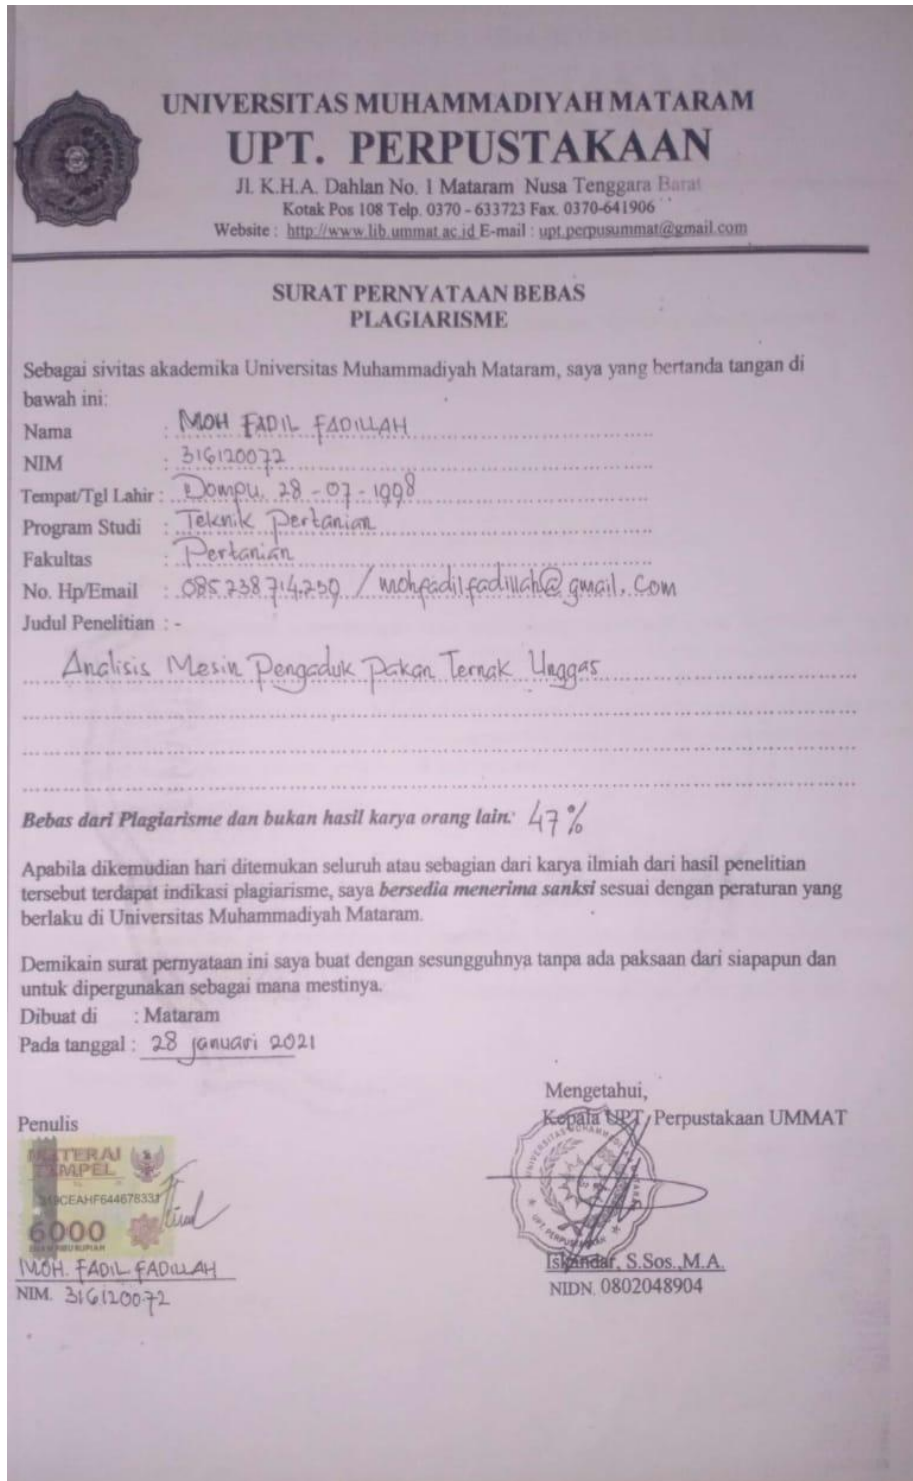 UNIVERSITAS MUHAMMADIYAH MATARAM
UPT. PERPUSTAKAAN
Jl. K.H.A. Dahlan No. 1 Mataram Nusa Tenggara Barat
Kotak Pos 108 Telp. 0370 - 633723 Fax. 0370-641906
Website : http://www.lib.ummat.ac.id E-mail : upt.perpusummat@gmail.com
SURAT PERNYATAAN BEBAS
PLAGIARISME
Sebagai sivitas akademika Universitas Muhammadiyah Mataram, saya yang bertanda tangan di
bawah ini:
Nama : MOH FADIL FADILLAH
NIM : 316120072
Tempat/Tgl Lahir : Dompu, 28 - 07 - 1998
Program Studi : Teknik Pertanian
Fakultas : Pertanian
No. Hp/Email : 085.238.714.239 / mohfadilfadillah@gmail.com
Judul Penelitian : -
Analisis Mesin Pengaduk Pakan Ternak Unggas
Bebas dari Plagiarisme dan bukan hasil karya orang lain. 47%
Apabila dikemudian hari ditemukan seluruh atau sebagian dari karya ilmiah dari hasil penelitian
tersebut terdapat indikasi plagiarisme, saya bersedia menerima sanksi sesuai dengan peraturan yang
berlaku di Universitas Muhammadiyah Mataram.
Demikain surat pernyataan ini saya buat dengan sesungguhnya tanpa ada paksaan dari siapapun dan
untuk dipergunakan sebagai mana mestinya.
Dibuat di : Mataram
Pada tanggal : 28 januari 2021
Mengetahui,
Penulis
Kepala UPT. Perpustakaan UMMAT
METERAI
TEMPEL
6000
MOH. FADIL FADILLAH
NIM. 316120072
UPT. PERPUSTAKAAN
Iskandar, S.Sos.,M.A.
NIDN. 0802048904